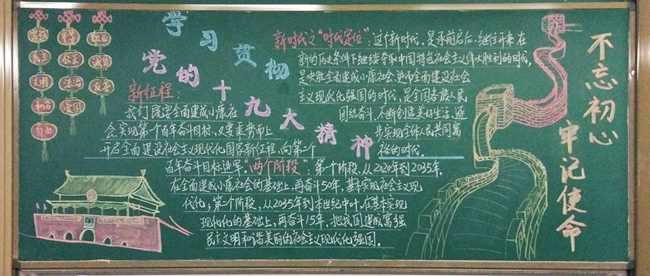 学习贯彻
党的十九大精神
不忘初心
牢记使命
新时代之"时代定位":这个新时代,是承前启后、继往开来、在
新的历史条件下继续夺取中国特色社会主义伟大胜利的时代,
是决胜全面建成小康社会、进而全面建设社会
主义现代化强国的时代,是全国各族人民
团结奋斗、不断创造美好生活、逐
步实现全体人民共同富
裕的时代.
新征程:
我们既要全面建成小康社
会、实现第一个百年奋斗目标,又要乘势而上
开启全面建设社会主义现代化国家新征程,向第二个
百年奋斗目标进军."两个阶段":第一个阶段,从2020年到2035年,
在全面建成小康社会的基础上,再奋斗
基本实现社会主义现
代化,第二个阶段,从2035年到本世纪中叶,在基本实现
现代化的基础上,再奋斗15年,把我国建成富强
民主文明和谐美丽的社会主义现代化强国.
富强
民主
文明
和谐
自由
平等
公正
法治
爱国
敬业
诚信
友善